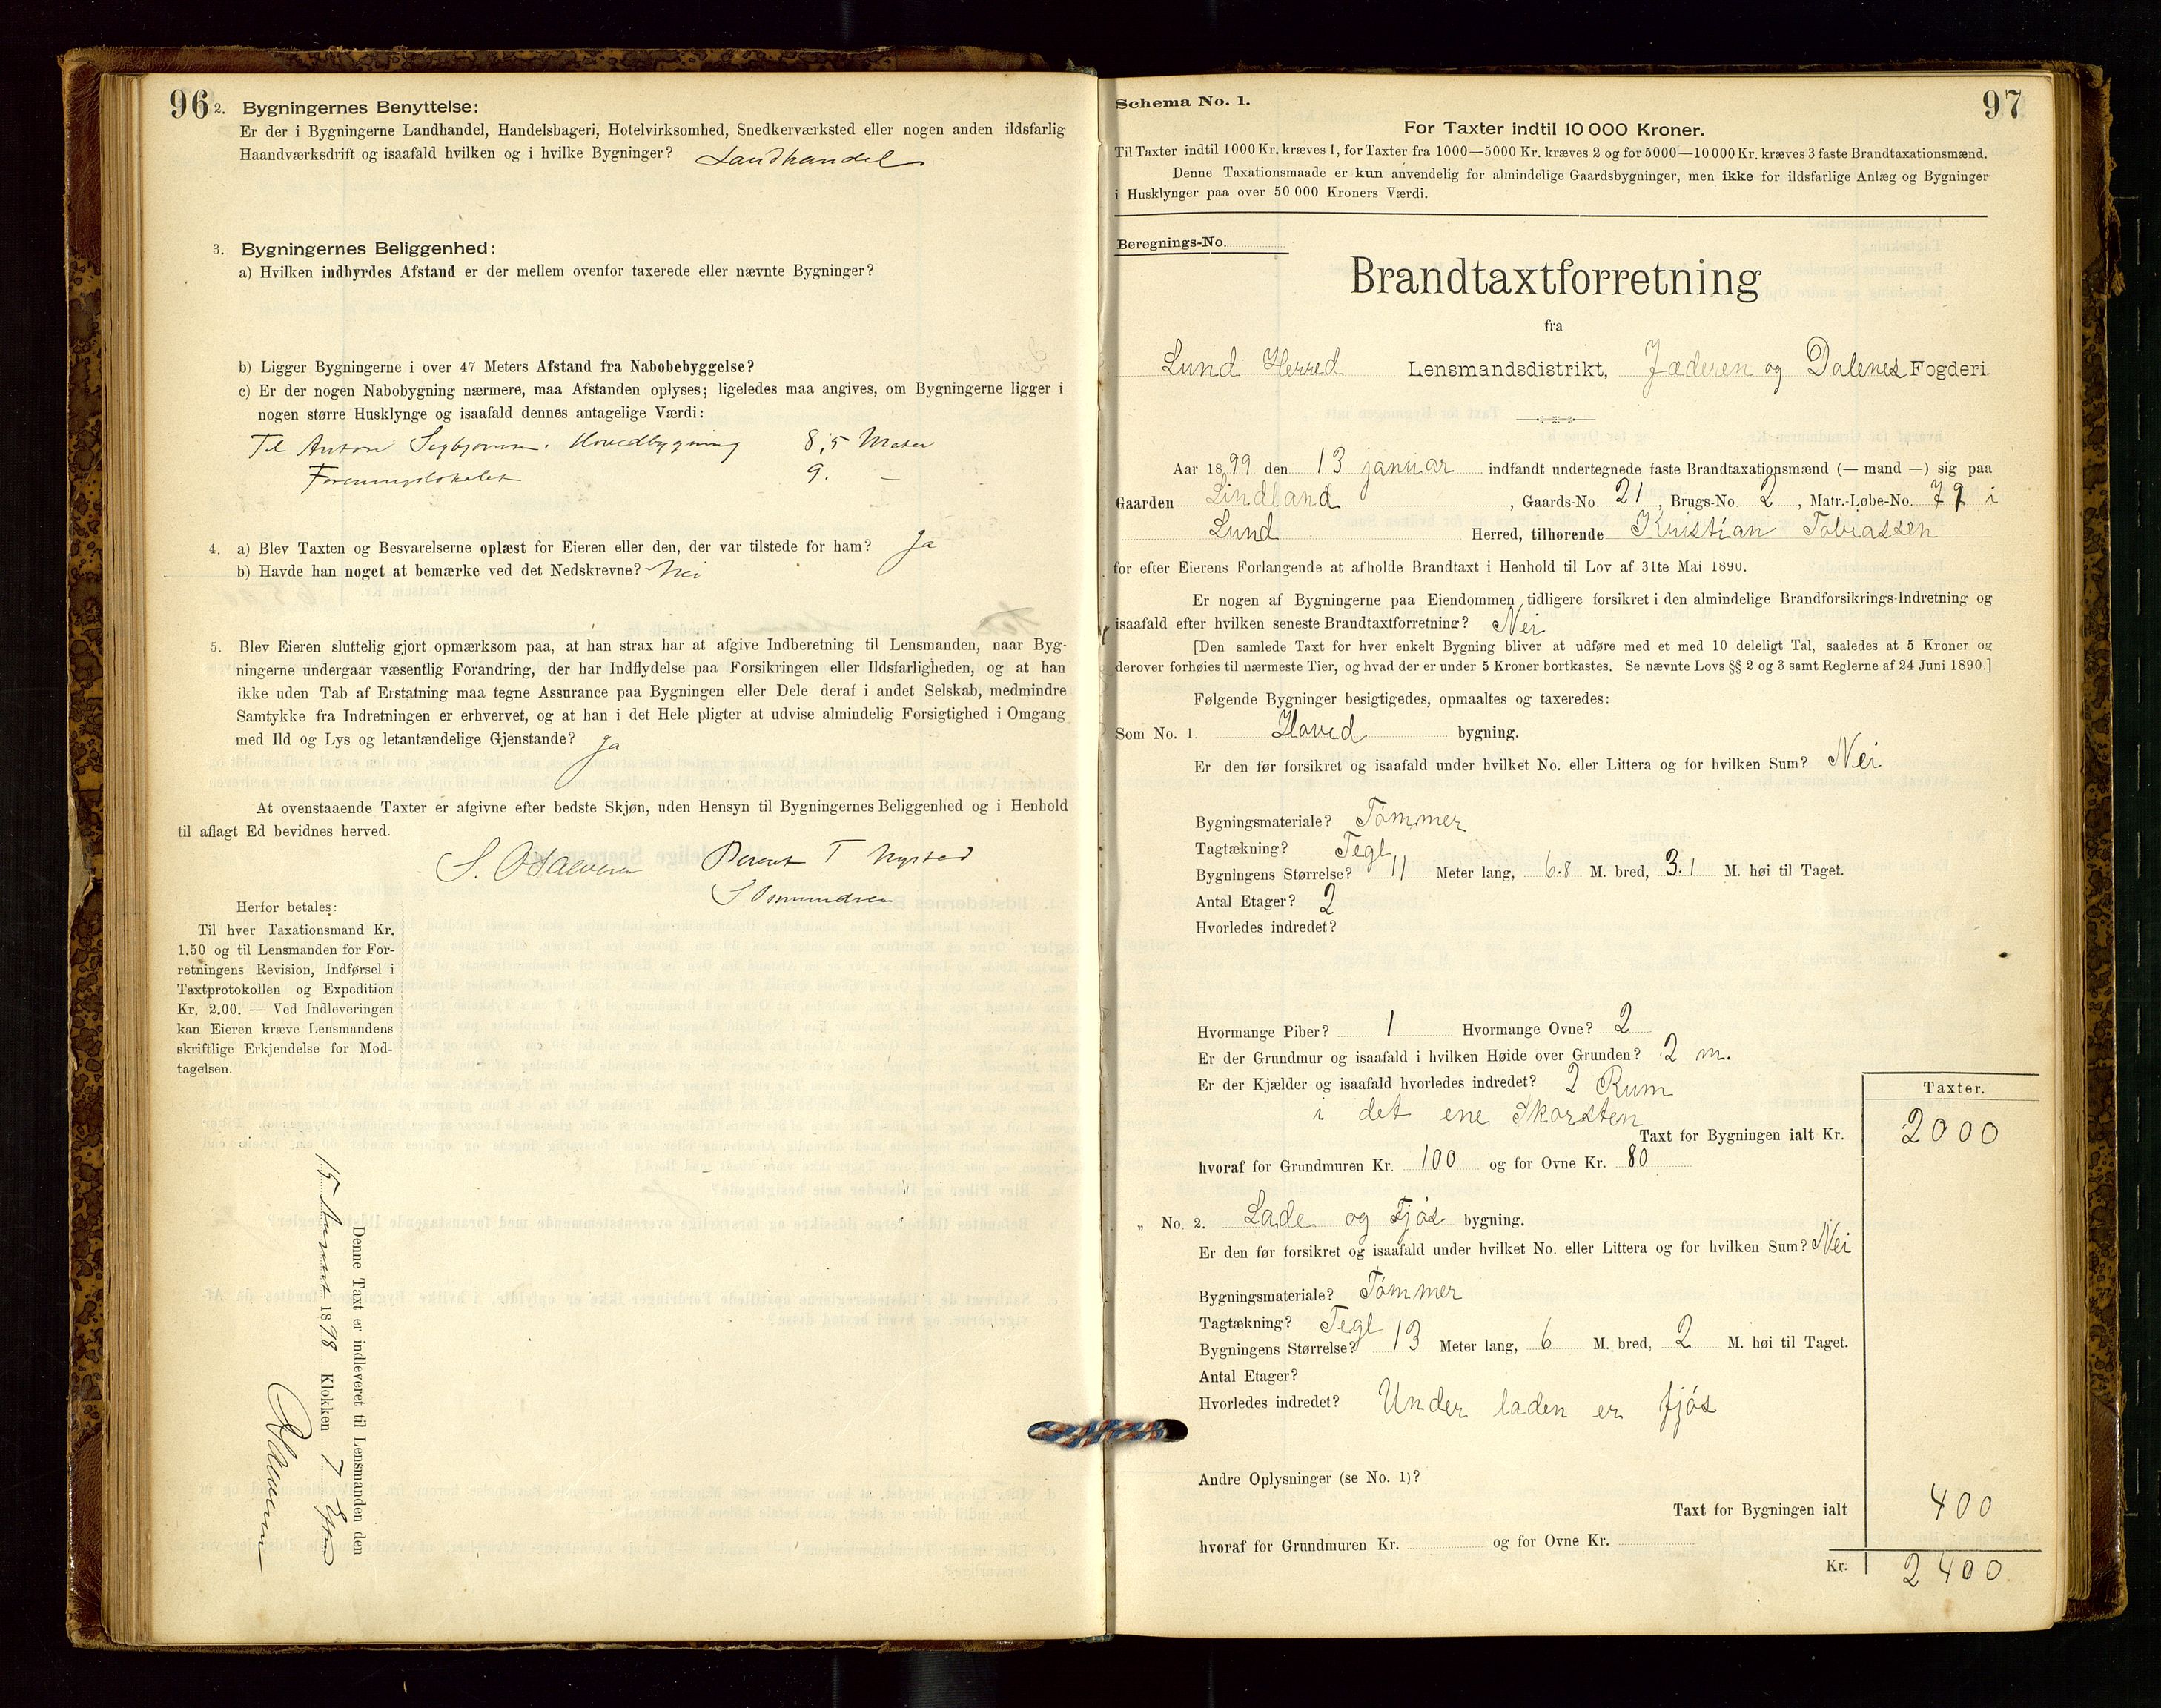 96
2. Bygningernes Benyttelse:
Er der i Bygningerne Landhandel, Handelsbageri, Hotelvirksomhed, Snedkerværksted eller nogen anden ildsfarlig
Haandværksdrift og isaafald hvilken og i hvilke Bygninger? Landhandel
3. Bygningernes Beliggenhed:
a) Hvilken indbyrdes Afstand er der mellem ovenfor taxerede eller nævnte Bygninger?
b) Ligger Bygningerne i over 47 Meters Afstand fra Nabobebyggelse?
c) Er der nogen Nabobygning nærmere, maa Afstanden oplyses; ligeledes maa angives, om Bygningerne ligger i
nogen større Husklynge og isaafald dennes antagelige Værdi:
Til Anton Hovedbygning 8,5 Meter
Foreningslokalet 9. —
4. a) Blev Taxten og Besvarelserne oplæst for Eieren eller den, der var tilstede for ham? Ja
b) Havde han noget at bemærke ved det Nedskrevne? Nei
5. Blev Eieren sluttelig gjort opmærksom paa, at han strax har at afgive Indberetning til Lensmanden, naar Byg-
ningerne undergaar væsentlig Forandring, der har Indflydelse paa Forsikringen eller Ildsfarligheden, og at han
ikke uden Tab af Erstatning maa tegne Assurance paa Bygningen eller Dele deraf i andet Selskab, medmindre
Samtykke fra Indretningen er erhvervet, og at han i det Hele pligter at udvise almindelig Forsigtighed i Omgang
med Ild og Lys og letantændelige Gjenstande? Ja
At ovenstaaende Taxter er afgivne efter bedste Skjøn, uden Hensyn til Bygningernes Beliggenhed og i Henhold
til aflagt Ed bevidnes herved.
Berent T Nystad
S Osmundsen
Herfor betales:
Til hver Taxationsmand Kr.
1.50 og til Lensmanden for For-
retningens Revision, Indførsel i
Taxtprotokollen og Expedition
Kr. 2.00. — Ved Indleveringen
kan Eieren kræve Lensmandens
skriftlige Erkjendelse for Mod-
tagelsen.
Denne Taxt er indleveret til Lensmanden den
15 August 1898 Klokken 7
97
Schema No. 1.
For Taxter indtil 10 000 Kroner.
Til Taxter indtil 1000 Kr. kræves 1, for Taxter fra 1000—5000 Kr. kræves 2 og for 5000—10000 Kr. kræves 3 faste Brandtaxationsmænd.
Denne Taxationsmaade er kun anvendelig for almindelige Gaardsbygninger, men ikke for ildsfarlige Anlæg og Bygninger
i Husklynger paa over 50 000 Kroners Værdi.
Beregnings-No.
Brandtaxtforretning
fra
Lund Herred Lensmandsdistrikt, Jæderen og Dalenes Fogderi
Aar 1899 den 13 januar indfandt undertegnede faste Brandtaxationsmænd (— mand —) sig paa
Gaarden Lindland, Gaards-No. 21, Brugs-No. 2, Matr.-Løbe-No. 79 i
Lund Herred, tilhørende Kristian Tobiassen
for efter Eierens Forlangende at afholde Brandtaxt i Henhold til Lov af 31te Mai 1890.
Er nogen af Bygningerne paa Eiendommen tidligere forsikret i den almindelige Brandforsikrings-Indretning og
isaafald efter hvilken seneste Brandtaxtforretning? Nei
[Den samlede Taxt for hver enkelt Bygning bliver at udføre med et med 10 deleligt Tal, saaledes at 5 Kroner og
derover forhøies til nærmeste Tier, og hvad der er under 5 Kroner bortkastes. Se nævnte Lovs §§ 2 og 3 samt Reglerne af 24 Juni 1890.]
Følgende Bygninger besigtigedes, opmaaltes og taxeredes:
Som No. 1. Hoved bygning.
Er den før forsikret og isaafald under hvilket No. eller Littera og for hvilken Sum? Nei
Bygningsmateriale? Tømmer
Tagtækning? Tegl
Bygningens Størrelse? 11 Meter lang, 6.8 M. bred, 3.1 M. høi til Taget.
Antal Etager? 2
Hvorledes indredet?
Hvormange Piber? 1 Hvormange Ovne? 2
Er der Grundmur og isaafald i hvilken Høide over Grunden? 2 m.
Er der Kjælder og isaafald hvorledes indredet? 2 Rum
i det ene Skorsten
Taxter.
Taxt for Bygningen ialt Kr. 2000
hvoraf for Grundmuren Kr. 100 og for Ovne Kr. 80
„ No. 2. Lade og Fjøs bygning.
Er den før forsikret og isaafald under hvilket No. eller Littera og for hvilken Sum? Nei
Bygningsmateriale? Tømmer
Tagtækning? Tegl
Bygningens Størrelse? 13 Meter lang, 6 M. bred, 2 M. høi til Taget.
Antal Etager?
Hvorledes indredet? Under laden er fjøs
Andre Oplysninger (se No. 1)?
Taxt for Bygningen ialt 400
hvoraf for Grundmuren Kr. og for Ovne Kr.
Kr. 2400